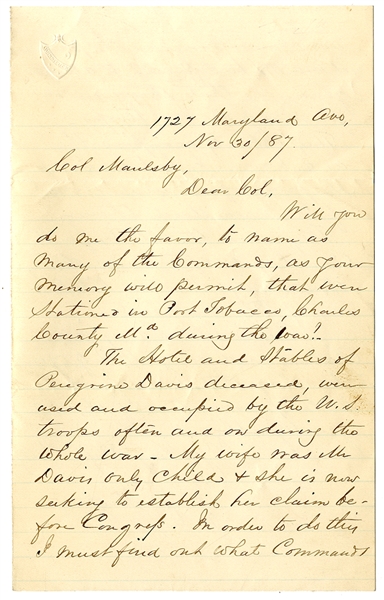 1727 Maryland Ave,
Nov 30/87.
Col Maulsby,
Dear Col,
Will you
do me the favor, to name as
many of the Commands, as your
memory will permit, that were
Stationed in Port Tobacco, Charles
County Md. during the war!-
The Hotel and Stables of
Peregrine Davis deceased, were
used and occupied by the U.S.
troops often and on during the
whole war - My wife was Mr
Davis only Child & she is now
seeking to establish her claim be-
fore Congress. In order to do this
I must find out what Commands